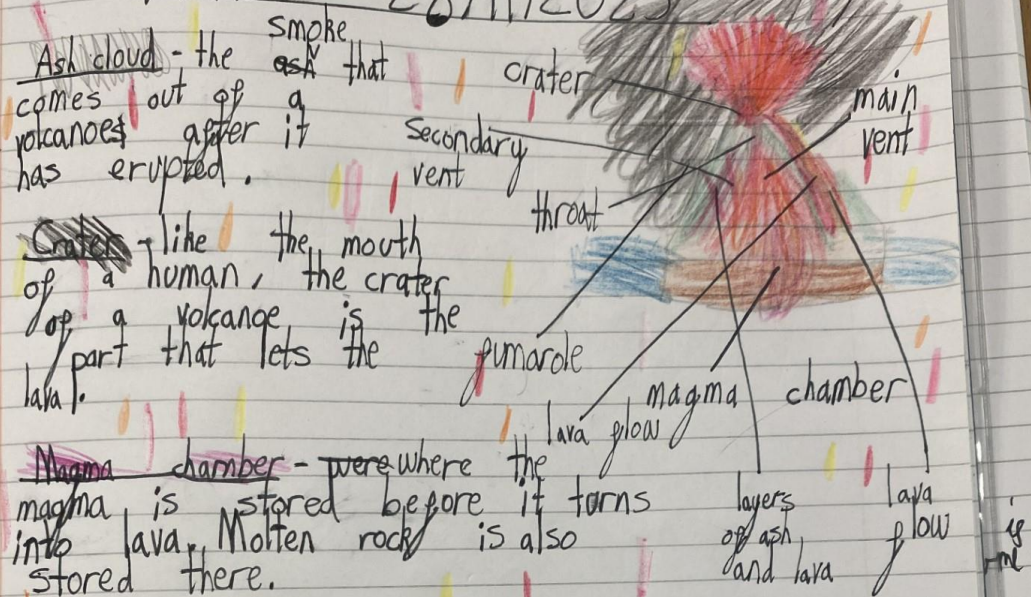 Ash cloud - the ash smoke that
comes out of a
volcanoes after it
has erupted.
Crater - like the mouth
of a human, the crater
of a volcanoe is the
part that lets the
lava.
Magma chamber - were where the
magma is stored before it torns
into lava. Molten rock is also
stored there.
crater
main
vent
Secondary
vent
throat
fumarole
magma chamber
lava flow
layers
of ash
and lava
lava
flow